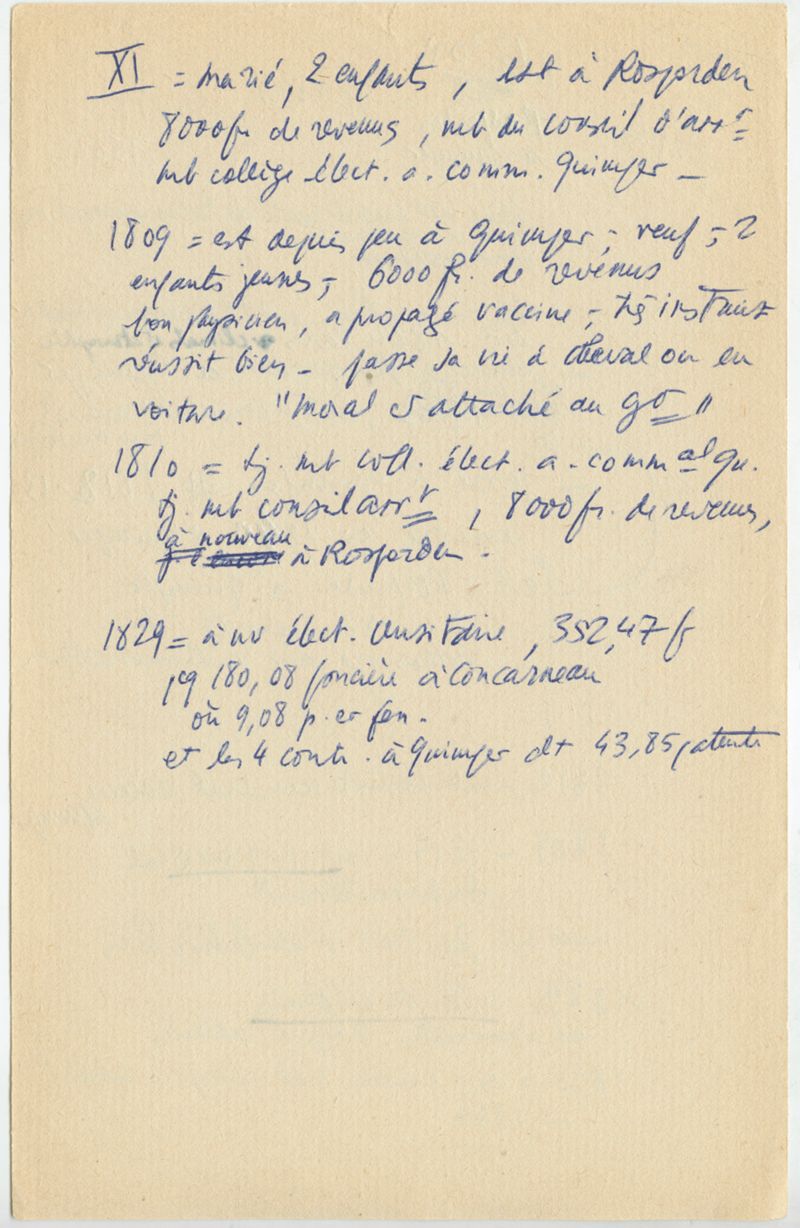 XI = marié, 2 enfants, est à Rosporden
8000fr de revenus, mb du conseil d'arrt
mb collège élect. a. comm. Quimper –
1809 = est depuis peu à Quimper; veuf; 2
enfants jeunes; 6000 fr. de revenus
bon physicien, a propagé vaccine; très instruit
réussit bien – passe sa vie à cheval ou en
voiture. "Moral et attaché au gt"
1810 = tj. mb coll. élect. a.ommal Qu.
tj. mb conseil arrt, 8000 fr. de revenus,
à nouveau
à Rosporden.
1829 = à nv élect. censitaire, 352,47 f
180,08 foncière à Concarneau
où 9,08 p. et fen.
et les 4 contr. à Quimper dt 43,85 patente